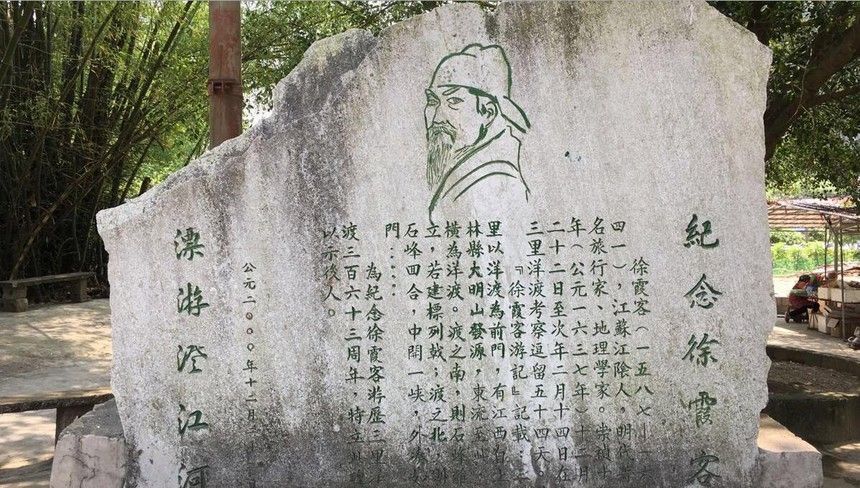 紀念徐霞客
徐霞客（一五八七—一六
四一），江蘇江陰人，明代
名旅行家、地理學家。崇禎十
年（公元一六三七年）十二月
二十二日至次年二月十四日在
三里洋渡考察逗留五十四天
『徐霞客游記』記載：三
里以洋渡為前門，有江西自上
林縣大明山發源，東流至此
橫為洋渡。渡之南，則石
立，若建標列戟；渡之北
石峰四合，中開一峽，外湊如
門……
為紀念徐霞客游歷三里洋
渡三百六十三周年，特立此碑
以示後人。
公元二000年十二月
漂游澄江河